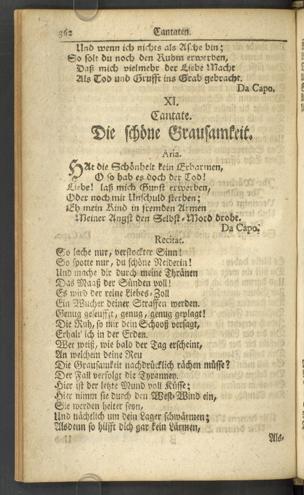 362 Cantaten.
Und wenn ich nichts als Asche bin;
So solt du noch den Ruhm erwerben,
Daß mich vielmehr der Liebe Macht
Als Tod und Grufft ins Grab gebracht.
Da Capo.
XI.
Cantate.
Die schöne Grausamkeit.
Aria.
HAt die Schönheit kein Erbarmen,
O so hab es doch der Tod!
Liebe! laß mich Gunst erwerben,
Oder noch mit Unschuld sterben;
Eh mein Kind in fremden Armen
Meiner Angst den Selbst-Mord droht.
Da Capo.
Recitat.
So lache nur, verstockter Sinn!
So spotte nur, du schöne Mörderin!
Und mache dir durch meine Thränen
Das Maaß der Sünden voll!
Es wird der reine Liebes-Zoll
Ein Wucher deiner Straffen werden.
Genug geseuffzt, genug, genug geplagt!
Die Ruh, so mir dein Schooß versagt,
Erhalt ich in der Erden.
Wer weiß, wie bald der Tag erscheint,
An welchem deine Reu
Die Grausamkeit nachdrücklich rächen müsse?
Der Fall verfolgt die Tyranney.
Hier ist der letzte Mund voll Küsse;
Hier nimm sie durch den West-Wind ein,
Sie werden heiter seyn,
Und nächtlich um dein Lager schwärmen;
Alsdenn so hilfft dich gar kein Lärmen,
Als-